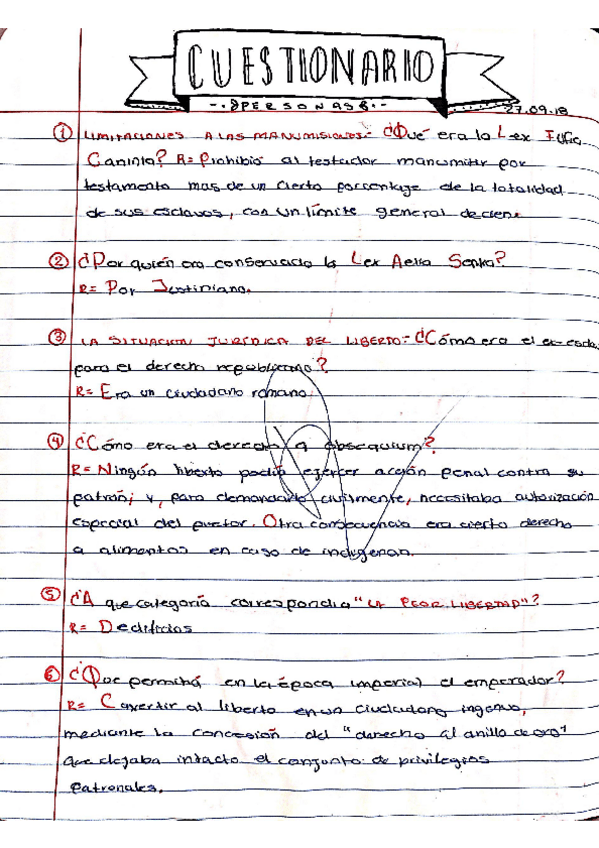 CUESTIONARIO
-·PERSONAS·-
27.09.18
① LIMITACIONES A LAS MANUMISIONES.- ¿Qué era la Lex Fufia
Caninia? R= Prohibió al testador manumitir por
testamento mas de un cierto porcentaje de la totalidad
de sus esclavos, con un límite general de cien.
② ¿Por quién era conservada la Lex Aelia Sentia?
R= Por Justiniano.
③ LA SITUACION JURÍDICA DEL LIBERTO.- ¿Cómo era el ex-escla.
para el derecho republicano?
R= Era un ciudadano romano.
④ ¿Cómo era el derecho a obsequium?
R= Ningún liberto podía ejercer acción penal contra su
patrón; y, para demandarlo civilmente, necesitaba autorización
especial del pretor. Otra consecuencia era cierto derecho
a alimentos en caso de indigencia.
⑤ ¿A que categoría correspondia "LA PEOR LIBERTAD"?
R= Dediticios
⑥ ¿Que permitía en la época imperial el emperador?
R= Convertir al liberto en un ciudadano ingenuo,
mediante la concesión del "derecho al anillo de oro"
que dejaba intacto el conjunto de privilegios
patronales.